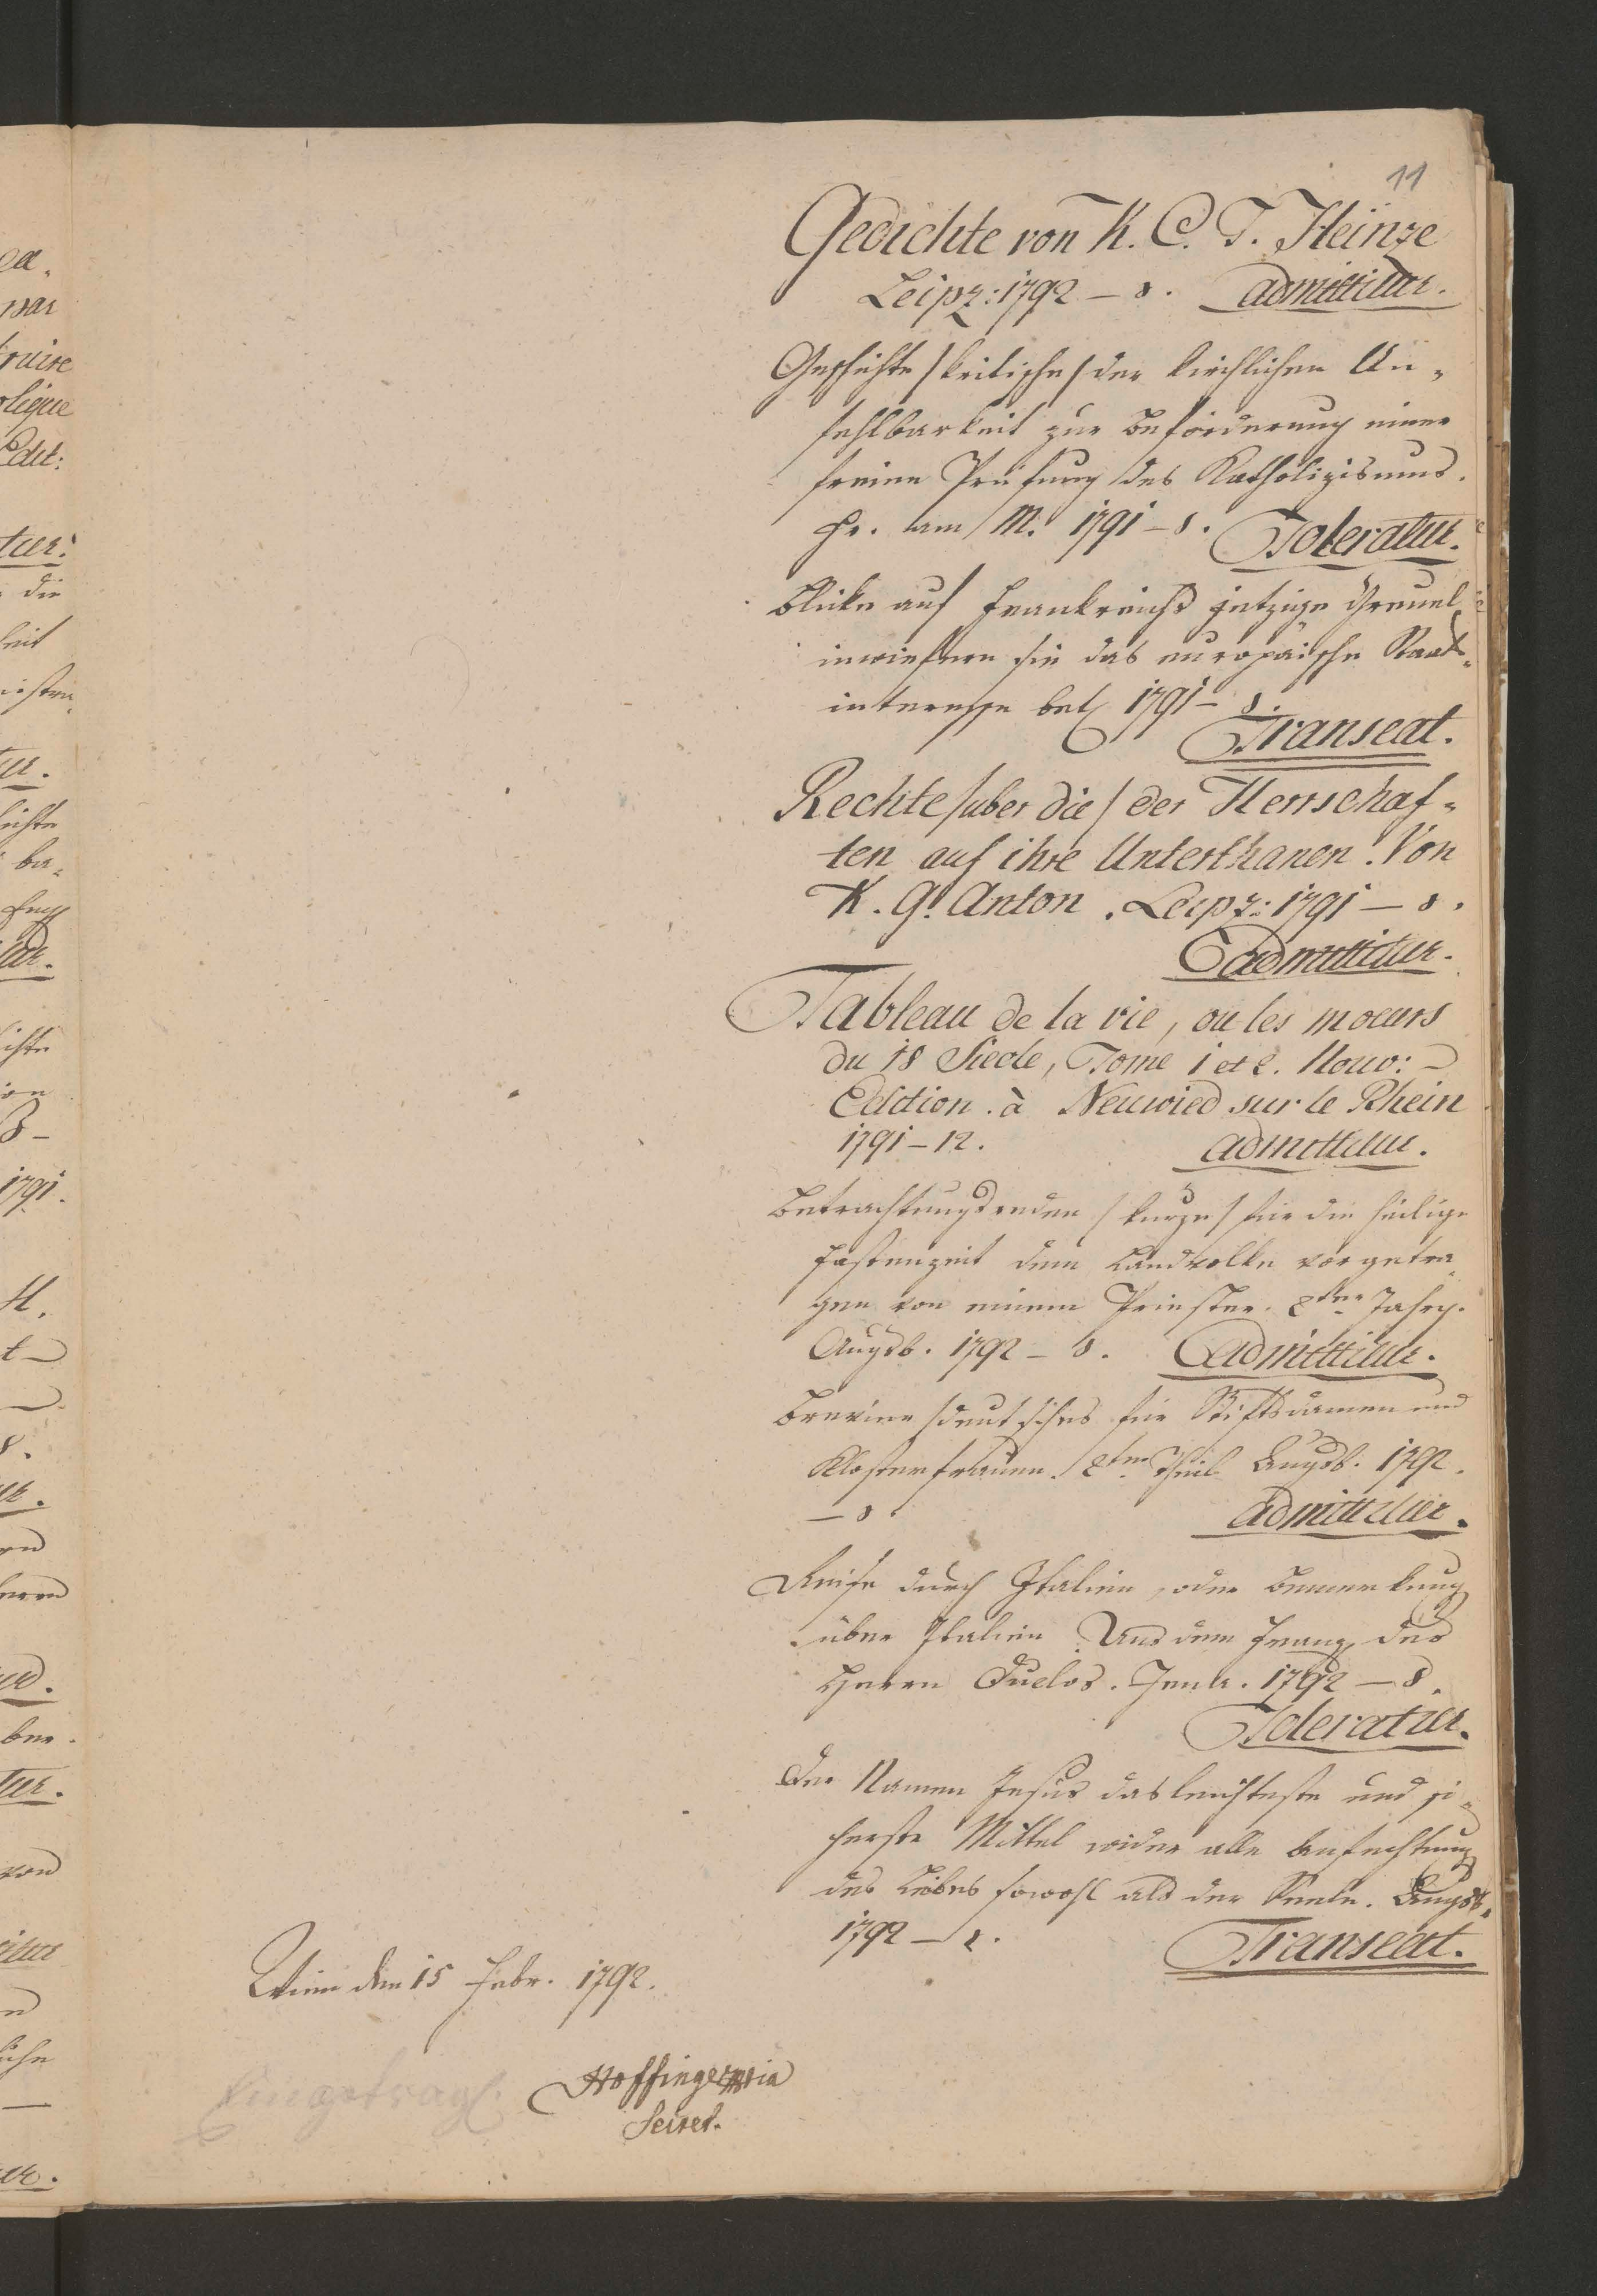 11
Gedichte von K. C. T. Heinze
Leipz: 1792 – 8. admittitur.
Geschichte /kritische/ der kirchlichen Un-
fehlbarkeit zur Beförderung einer
freien Prüfung des Katholizismus.
Fr. am M. 1791 – 8. Toleratur.
Blicke auf Frankreichs jetzige Greuel
inwiefern sie das europäische Staats-
interesse bet 1791 – 8.
Transeat.
Rechte /über die/ der Herrschaf-
ten auf ihre Unterthanen. Von
K. G. Anton. Leipz: 1791 – 8.
admittitur.
Tableau de la vie, ou les moeurs
du 18 Siecle, Tome 1 et 2. Nouv:
Edition. à Neuwied sur le Rhein
1791 – 12. admittitur.
Betrachtungsreden /kurze/ für die heilige
Fastenzeit dem Landvolke vorgetra-
gen von einem Priester. 2ter Jahrg.
Augsb. 1792 – 8. admittitur.
Brevier /deutsches für Stiftsdamen und
Klosterfrauen. 2ter Theil Augsb. 1792.
– 8. admittitur.
Reise durch Italien, oder Bemerkung
über Italien. Aus dem Franz. des
Herrn Duclos. Jena. 1792 – 8.
Toleratur.
Der Namen Jesus das leichteste und si-
cherste Mittel wider alle Anfechtung
des Leibes sowohl als der Seele. Augsb.
1792 – 8. Transeat.
Wien den 15 Febr. 1792.
Hoffinger mpria
Secret.
Eingetrag.